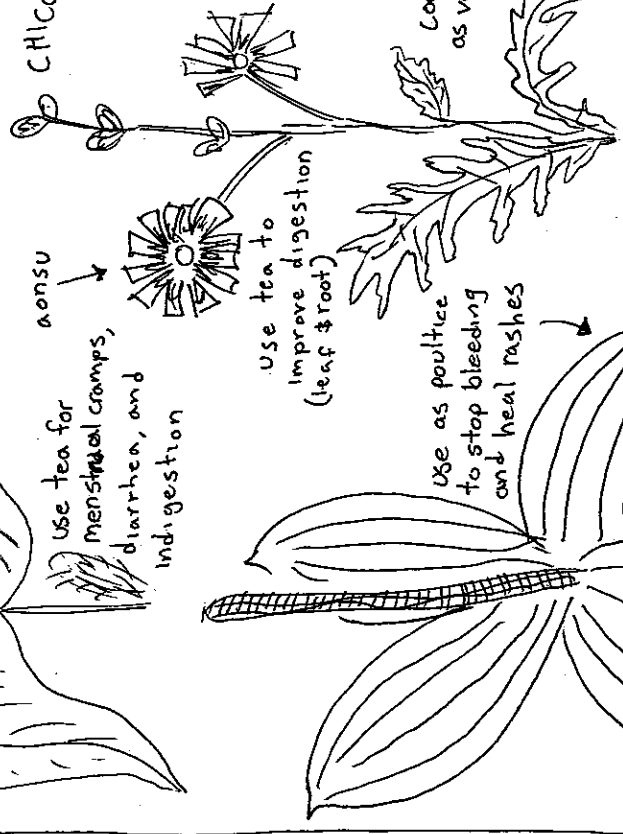 aonsu
use tea for
menstrual cramps,
diarrhea, and
indigestion
Use tea to
improve digestion
(leaf & root)
as
use as poultice
to stop bleeding
and heal rashes